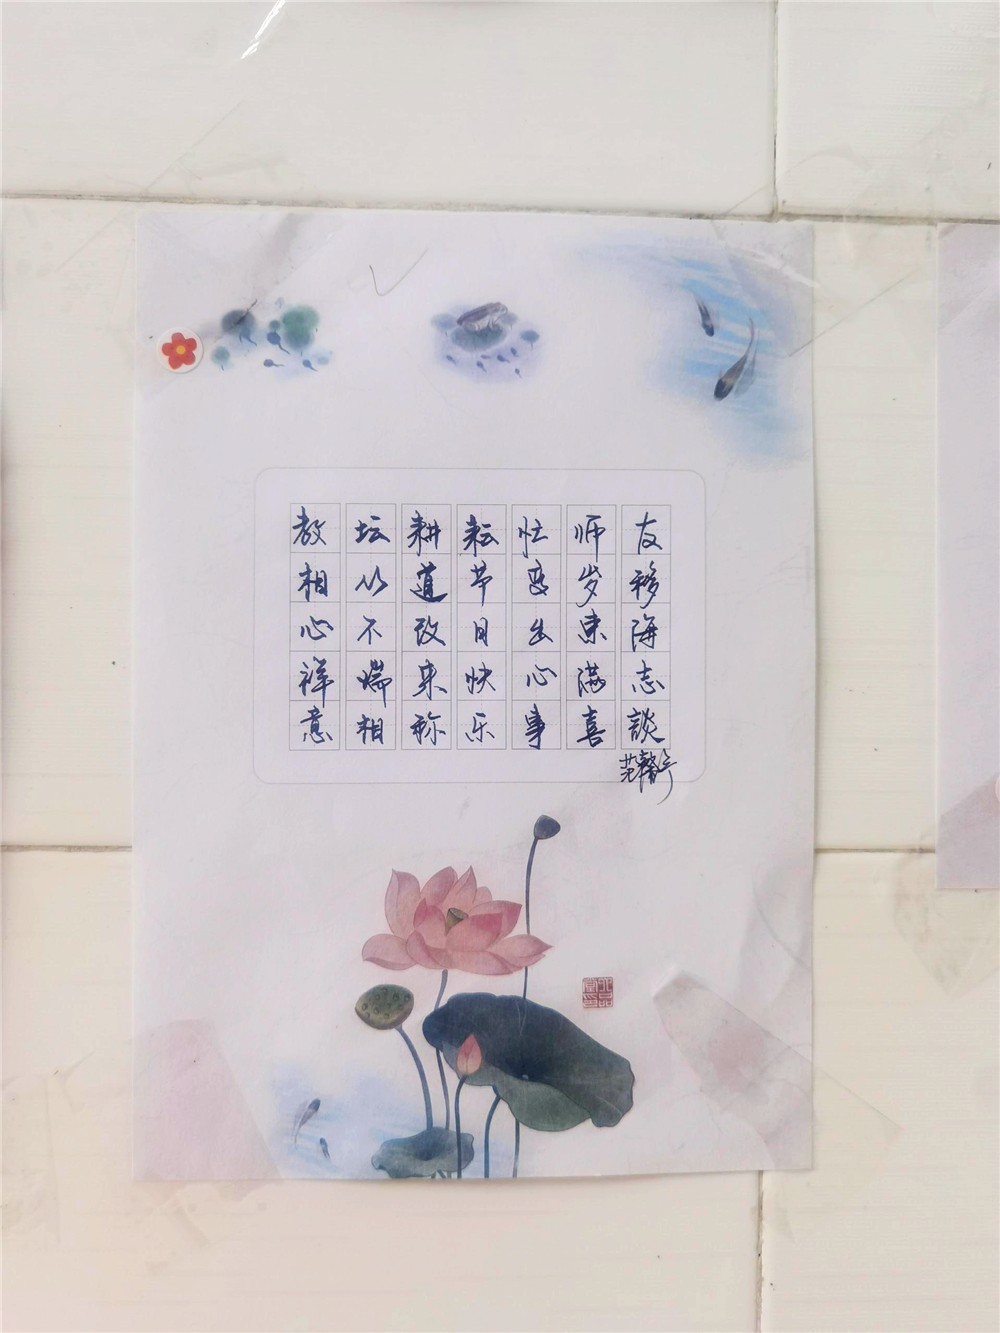 教坛耕耘忙师友
相以道节变岁移
心不改日出东海
祥端来快心满志
意相称乐事喜談
范馨兮